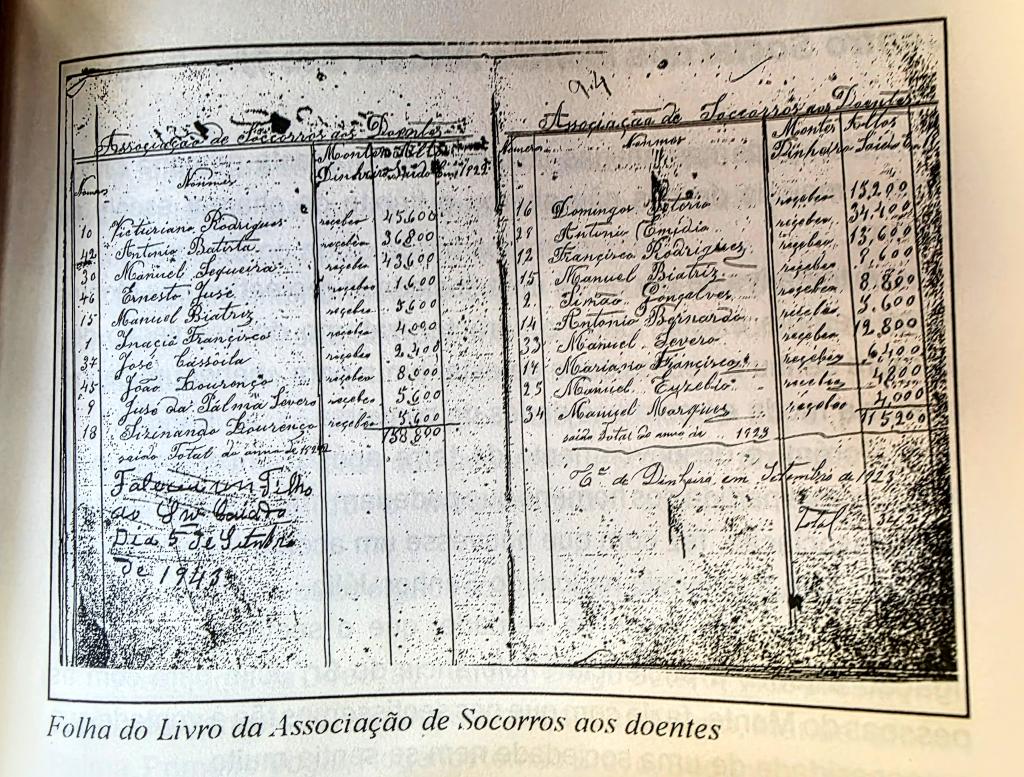 Associação de Soccorros aos Doentes
Nonmes
Montes Altos
Dinheiro Saido em 1922
10 Victuriano Rodrigues recebeo 45.600
42 Antonio Batista recebeo 36.800
30 Manuel Sequeira recebeo 43.600
46 Ernesto José recebeo 1.600
15 Manuel Biatriz recebeo 5.600
1 Inacio Francisco recebeo 4.000
37 José Cassoila recebeo 2.400
45 João Lourenço recebeo 8.000
9 José da Palma Severo recebeo 5.600
18 Sizinando Lourenço recebeo 5.600
saido Total do anno de 1922 158.800
Faleceu um Filho
ao Snr
Dia 5 de
de 1943
94
Associação de Soccorros aos Doentes
Numero Nonmes
Montes Altos
Dinheiro Saido Em
16 Domingos recebeo 15.200
28 Antonio Emidio recebeo 34.400
12 Francisco Rodrigues recebeo 13.600
15 Manuel Biatriz recebeo 8.600
2 Simão Gonçalves recebeo 8.800
14 Antonio Bernardo recebeo 5.600
33 Manuel Severo recebeo 12.800
17 Mariano Francisco recebeo 6.400
25 Manuel Euzebio recebeo 4.800
34 Manuel Marques recebeo 4.000
saido Total do anno de 1923 115.200
de Dinheiro em Setembro de 1923
Total 342
Folha do Livro da Associação de Socorros aos doentes